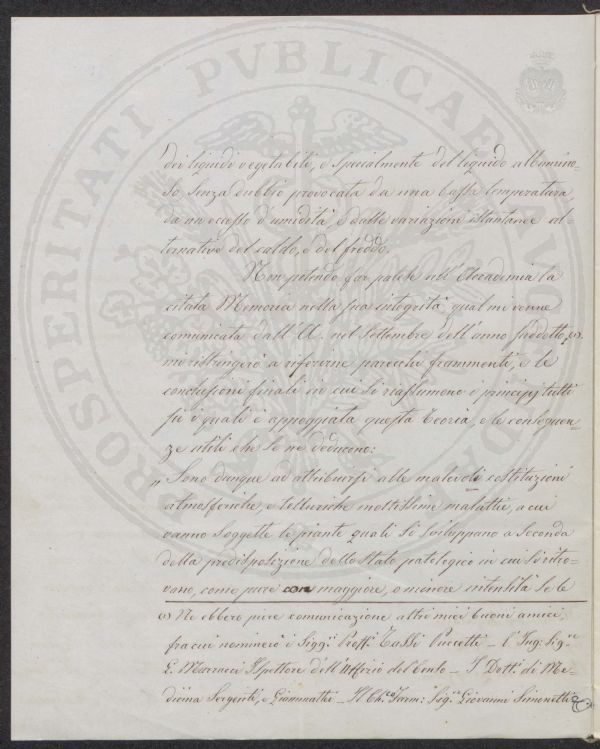 PROSPERITATI PVBLICAE AVGENDAE
dei liquidi vegetabili, e specialmente del liquido albumino-
so, senza dubbio provocata da una bassa temperatura
da un eccesso d'umidità, e dalle variazioni istantanee al-
ternative del caldo, e del freddo.
Non potendo far palese all'Accademia la
citata Memoria nella sua integrità qual mi venne
comunicata dall'A. nel Settembre dell'anno suddetto (1).
mi ristringerò a riferirne parecchi frammenti, e le
conclusioni finali in cui si riassumono i principj tutti
su i quali è appoggiata questa teoria, e le conseguen-
ze utili che se ne deducono:
„ Sono dunque ad attribuirsi alle malevoli costituzioni
atmosferiche, e telluriche moltissime malattie, a cui
vanno soggette le piante quali si sviluppano a seconda
della predisposizione dello stato patologico in cui si ritro-
vano, come pure con maggiore, o minore intensità se le
(1) Ne ebbero pure comunicazione altri miei buoni amici,
fra cui nominerò i Sigg.ri Proff.ri Tassi Puccetti – l'Ing: Sig.re
E. Marracci Ispettore dell'Uffizio del Censo – I Dott.ri di Me-
dicina Sergenti, e Giannatti – Il Ch.co Farm: Sig.re Giovanni Simonetti